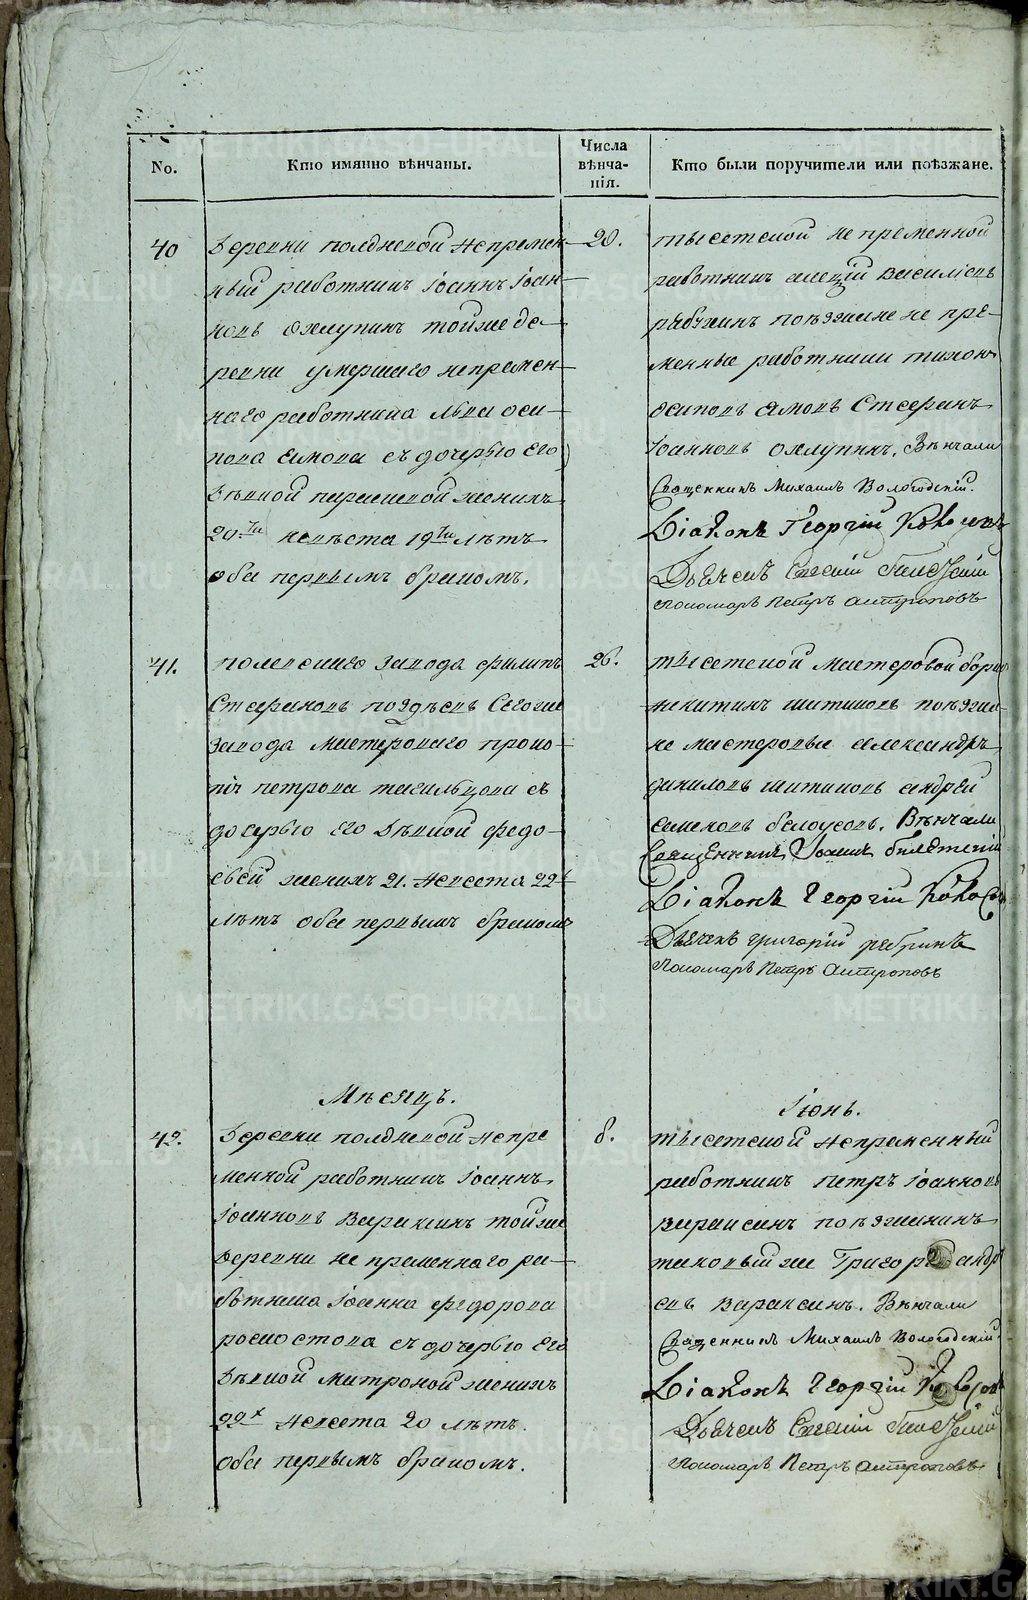 No.
Кто имянно вѣнчаны.
Числа
вѣнча-
нія.
Кто были поручители или поѣзжане.
40
Деревни полдневой непремен-
ный работникъ Іоаннъ Іоан-
новъ охлупинъ тойже де-
ревни умершаго непремен-
наго работника Льва оси-
пова съ дочерью его
Дѣвкой парасковьей женихъ
20ти невѣста 19ти лѣтъ
оба первымъ бракомъ.
20.
тысетской не пременной
работникъ алексій василіевъ
поезжане не пре-
менные работники тихонъ
осиповъ Стефанъ
Іоанновъ охлупинъ. Вѣнчали
Священникъ Михаилъ Вологодскій.
Діаконъ Георгій
Дьячекъ Евгеній
Пономарь Петръ Антроповъ
41.
полевскаго завода филипъ
Стефановъ поздѣевъ Сегоже
завода мастероваго проко-
пія петрова съ
дочерью его Дѣвкой федо-
сьей женихъ 21. невеста 22
лѣтъ оба первымъ бракомъ
26.
тысетской мастеровой
никитинъ шитиковъ поезжа-
не мастеровые александръ
даниловъ шитиковъ андрей
семеновъ белоусовъ. Вѣнчали
Священникъ Іоаннъ
Діаконъ Георгій
Дьячекъ григорій ребринъ
Пономарь Петръ Антроповъ
Мѣсяцъ.
Іюнь.
42.
Деревни полдневой непре
менной работникъ Іоаннъ
Іоанновъ Вараксинъ тойже
деревни не пременнаго ра-
ботника Іоанна федорова
съ дочерью его
Дѣвкой матроной женихъ
22х невеста 20 лѣтъ.
оба первымъ бракомъ.
8.
тысетской непременный
работникъ петръ Іоанновъ
вараксинъ поезжанинъ
таковый же Григорій андре
евъ вараксинъ. Вѣнчали
Священникъ Михаилъ Вологодскій.
Діаконъ Георгій
Дьячекъ Евгеній
Пономарь Петръ Антроповъ
METRIKI.GASO-URAL.RU